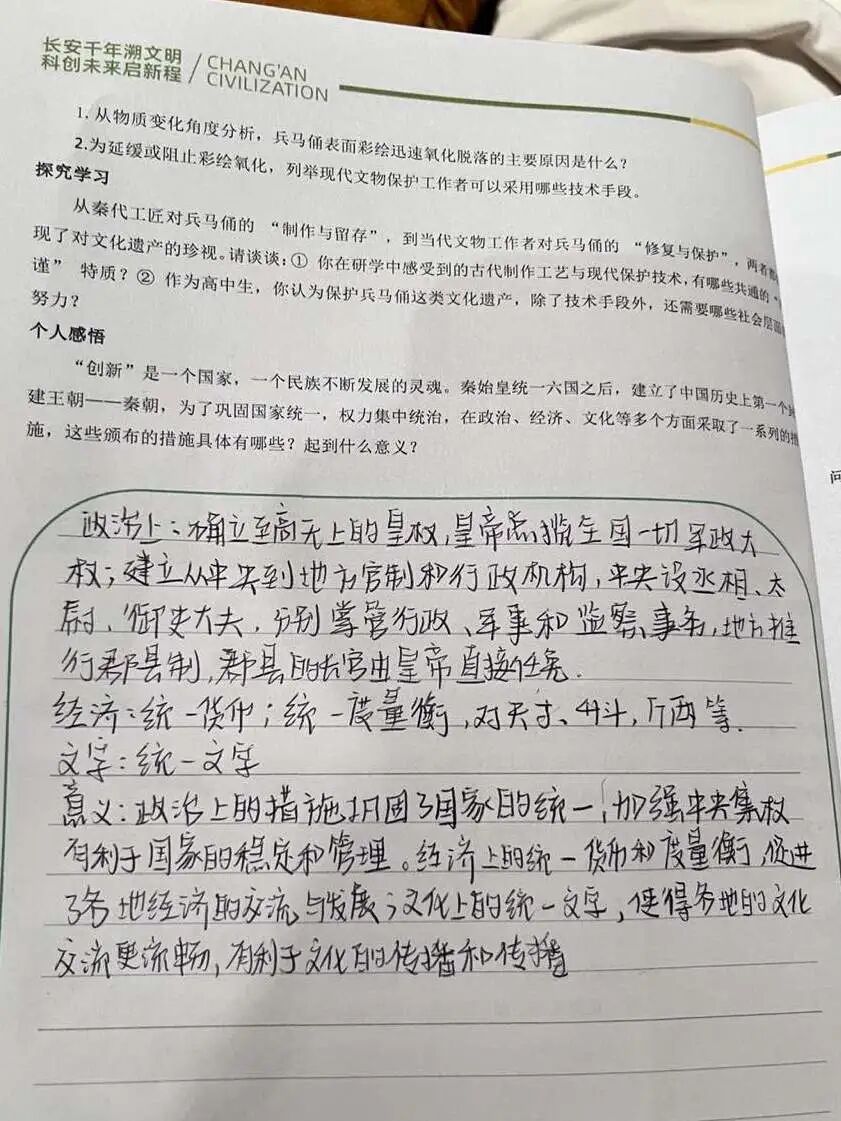 长安千年溯文明
科创未来启新程
CHANG'AN
CIVILIZATION
1.从物质变化角度分析，兵马俑表面彩绘迅速氧化脱落的主要原因是什么？
2.为延缓或阻止彩绘氧化，列举现代文物保护工作者可以采用哪些技术手段。
探究学习
从秦代工匠对兵马俑的“制作与留存”，到当代文物工作者对兵马俑的“修复与保护”，两者都
现了对文化遗产的珍视。请谈谈：① 你在研学中感受到的古代制作工艺与现代保护技术，有哪些共通的“
谨”特质？② 作为高中生，你认为保护兵马俑这类文化遗产，除了技术手段外，还需要哪些社会层面
努力？
个人感悟
“创新”是一个国家，一个民族不断发展的灵魂。秦始皇统一六国之后，建立了中国历史上第一个
建王朝——秦朝，为了巩固国家统一，权力集中统治，在政治、经济、文化等多个方面采取了一系列的措
施，这些颁布的措施具体有哪些？起到什么意义？
问
政治上：确立至高无上的皇权，皇帝总揽全国一切军政大
权；建立从中央到地方官制和行政机构，中央设丞相、太
尉、御史大夫，分别掌管行政、军事和监察事务，地方推
行郡县制，郡县的长官由皇帝直接任免.
经济：统一货币；统一度量衡，对尺寸、升斗，斤两等.
文字：统一文字
意义：政治上的措施巩固了国家的统一，加强中央集权
有利于国家的稳定和管理。经济上的统一货币和度量衡，促进
了各地经济的交流与发展；文化上的统一文字，使得各地的文化
交流更流畅，有利于文化的传播和传播